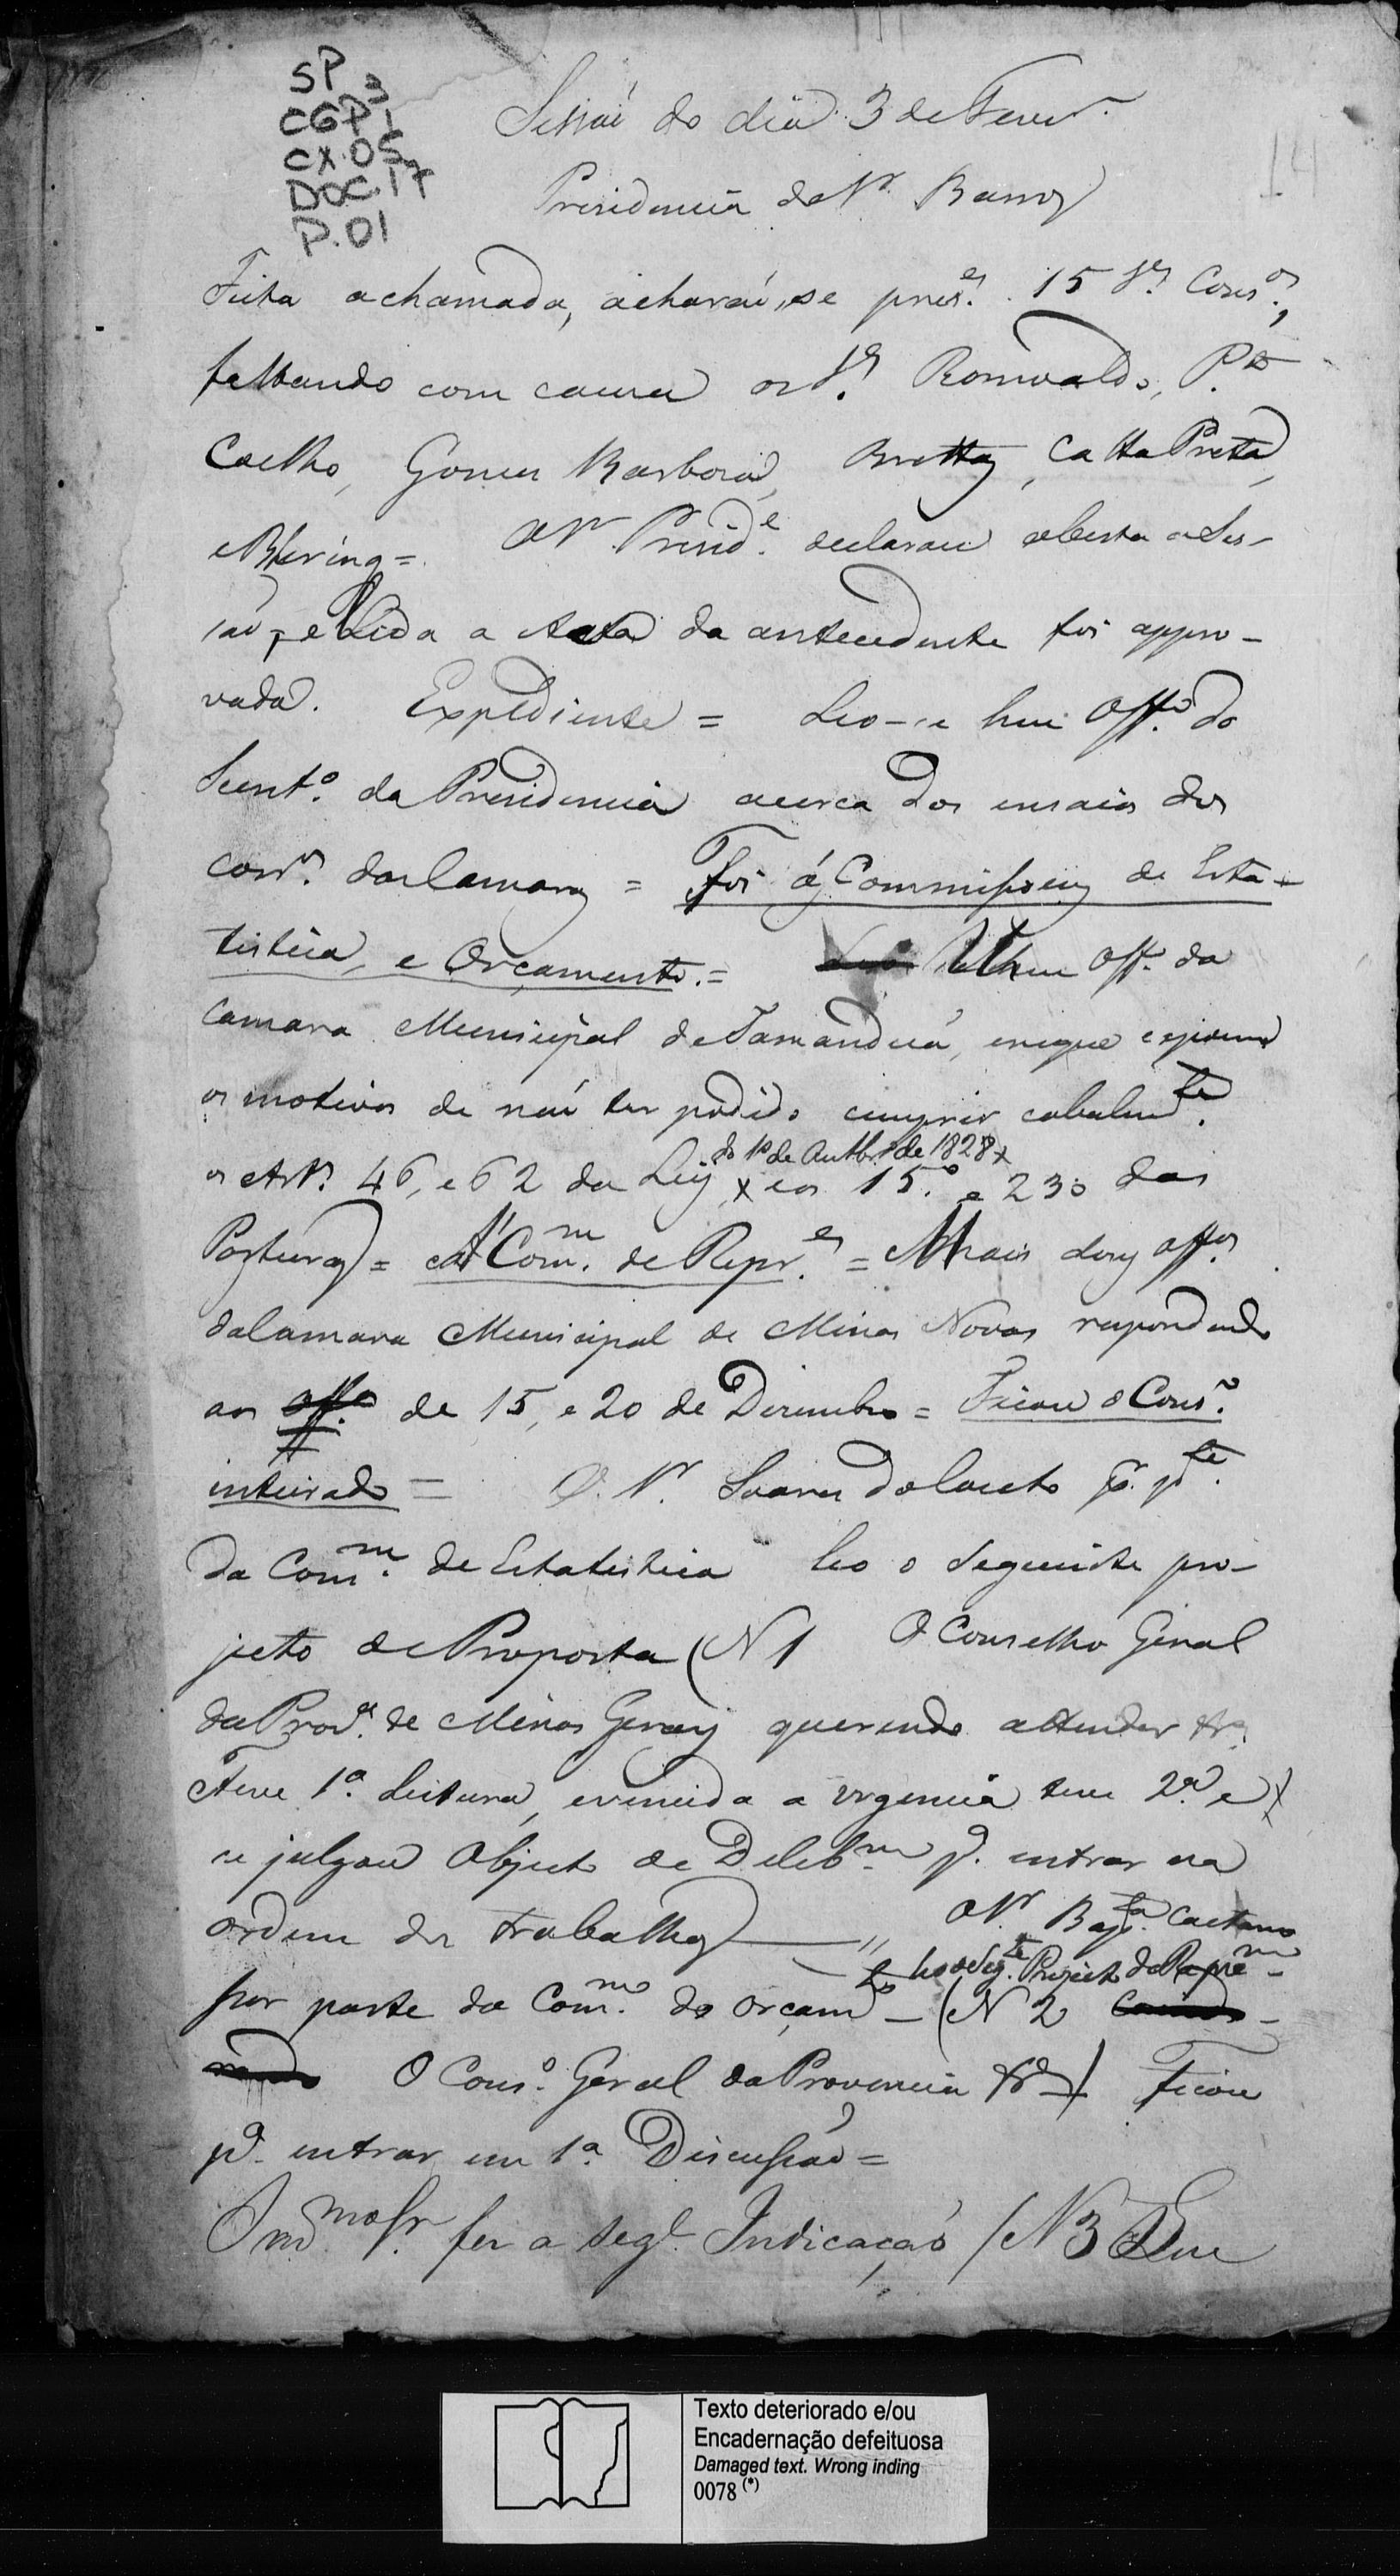 SP
CGP 3
CX.05
DOC.17
P.01
14
Sessaõ do dia 3 de Fever.
Presidencia do Sr. Barros
Feita a chamada, acharaõ-se pres.es 15 Sr.es Cons.os,
faltando com causa os Sr.es Romualdo, P.e
Coelho, Gomes Barbosa, Brettas, Catta Preta,
e Bhering = O Sr. Presid.e declarou aberta a Ses-
saõ, e Lida a Acta da antecedente foi appro-
vada. Expediente = Leo-se hum Off.o do
Secret.o da Presidencia acerca dos ensaios dos
das Camaras = Foi ás Commissoens de Esta-
tistica, e Orçamento. = hum Off. da
Camara Municipal de Tamanduá, em que expoem
os motivos de naõ ter podido cumprir cabalm.te
os Art.s 46, e 62 da Ley x do 1º de Outbr.o de 1828 x e os 15.º e 23º das
Posturas = A' Com.m de Repr.es = Mais dous off.os
da Camara Municipal de Minas Novas respondendo
aos off.os de 15, e 20 de Dezembro = Ficou o Cons.o
inteirado = O Sr. Soares do Couto por p.te
da Com.m de Estatistica leo o seguinte pro-
jecto de Proposta (N 1 O Conselho Geral
da Prov.a de Minas Geraes querendo attender &a.
Teve 1.a Leitura, e vencida a urgencia teve 2.a e
se julgou Objecto de Delib.m p.a entrar na
ordem dos trabalhos — " O Sr. Bap.ta Caetano
leo o seg.te Projecto de Repre.m -
por parte da Com.m do Orçam.to — (N 2
O Cons.o Geral da Provincia &a) Ficou
p.a entrar em 1.a Discussaõ =
O m.mo Sr. fez a seg.e Indicaçaõ (N 3
Texto deteriorado e/ou
Encadernação defeituosa
Damaged text. Wrong inding
0078 (*)